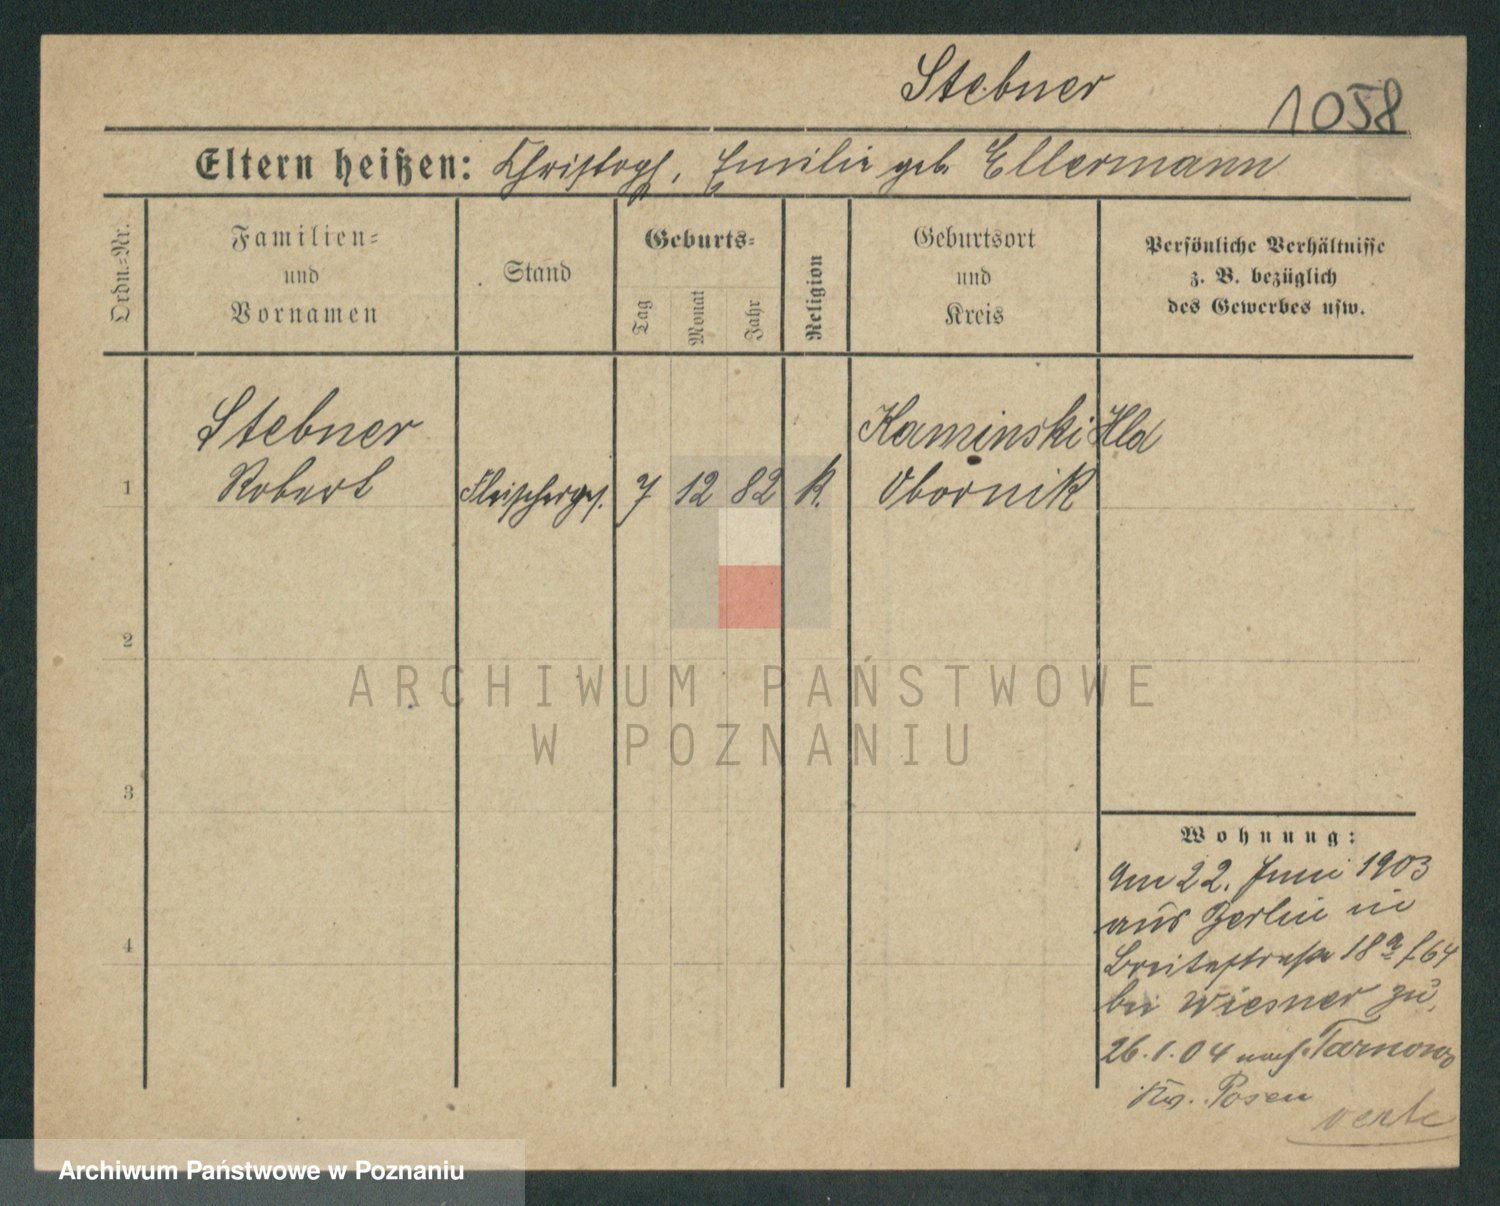 Stebner
1058
Eltern heißen: Christoph, Emilie geb. Ellermann
Ordn.-Nr.
Familien-
und
Vornamen
Stand
Geburts-
Tag
Monat
Jahr
Religion
Geburtsort
und
Kreis
Persönliche Verhältnisse
z. B. bezüglich
des Gewerbes usw.
Stebner
Kaminski Hld
1 Robert Fleischerges. 7 12 82 K. Obornik
2
ARCHIWUM PAŃSTWOWE
W POZNANIU
3
4
Wohnung:
Am 22. Juni 1903
aus Berlin in
Breitestraße 18a f. 64
bei Wiesner zu.
26.1.04 nach Tarnowo
Krs. Posen
verte
Archiwum Państwowe w Poznaniu